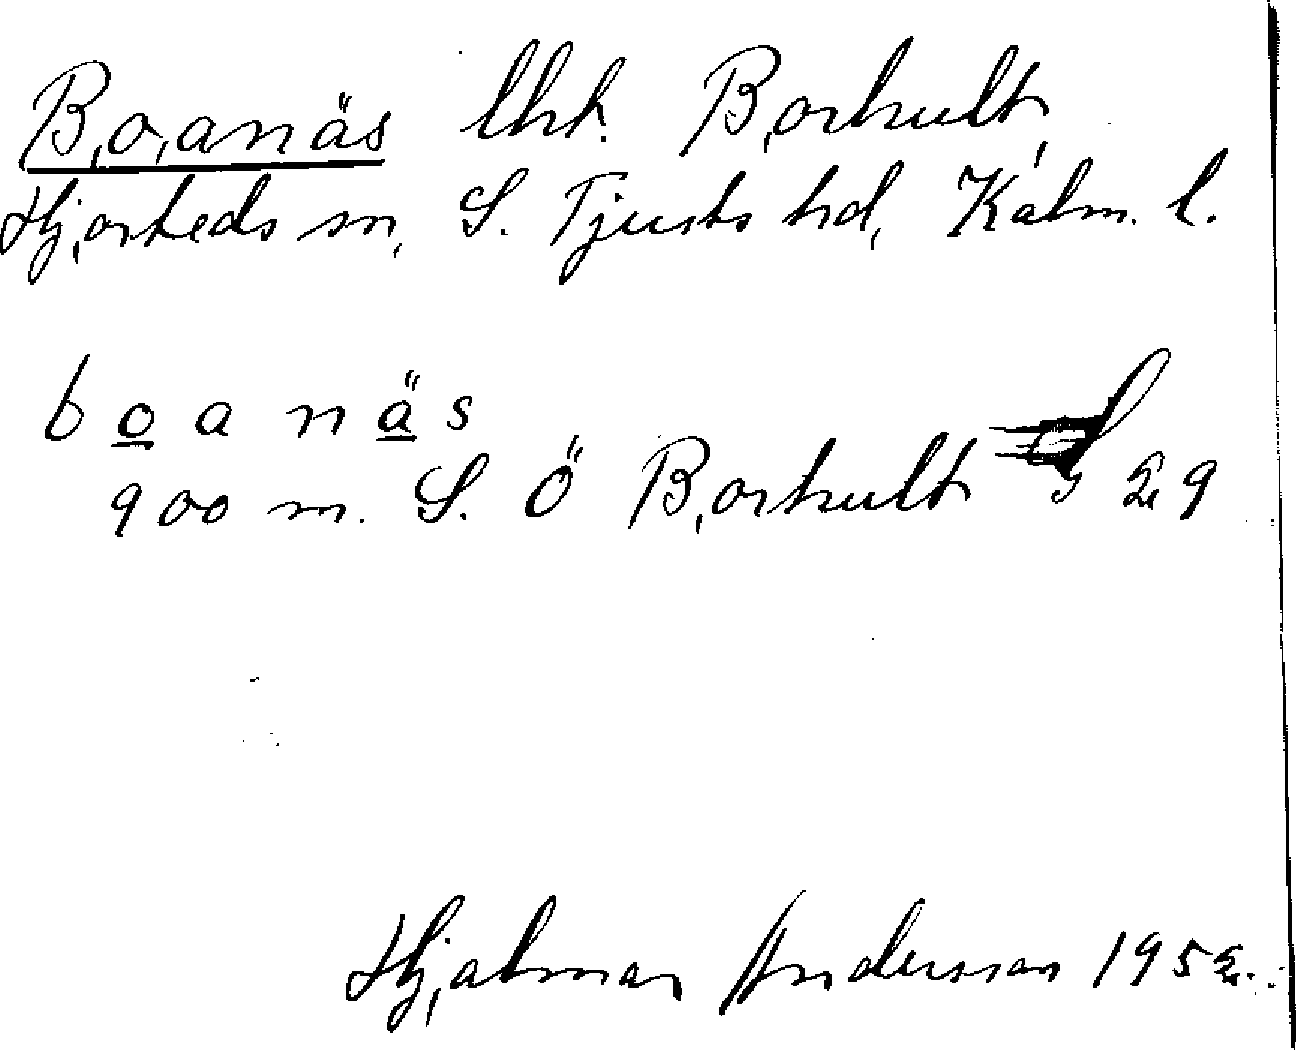 Boanäs lht. Borhult,
Hjorteds sn, S. Tjusts hd, Kalm. l.
boanäs
900 m. S. Ö Borhult 29
Hjalmar Andersson 1952.